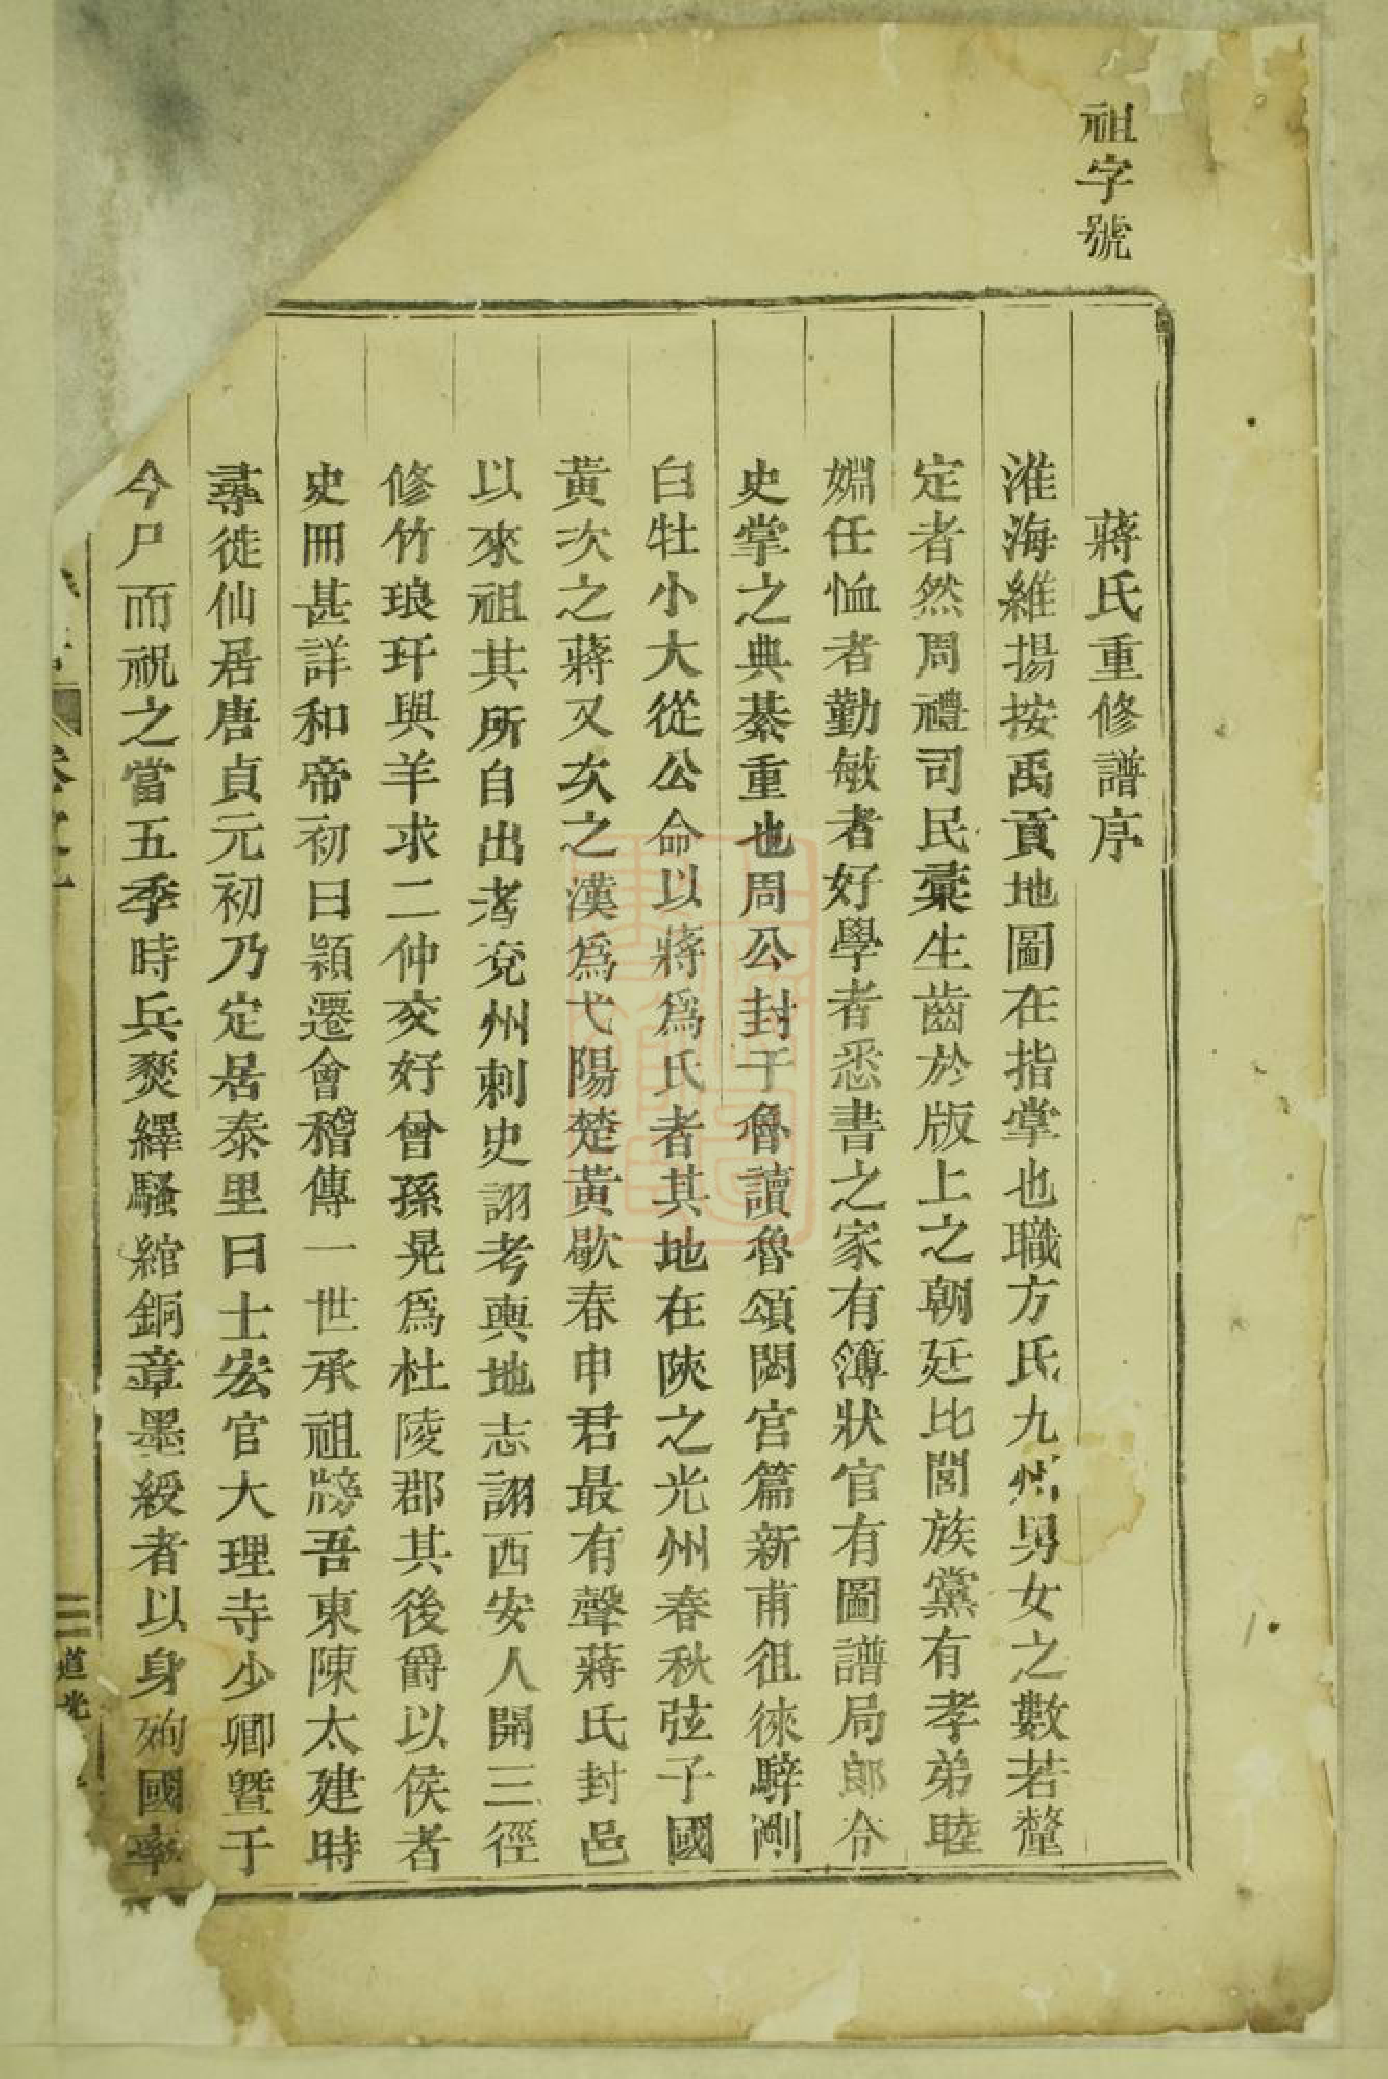 祖字號
蔣氏重修譜序
淮海維揚按禹貢地圖在指掌也職方氏九州男女之數若釐
定者然周禮司民彙生齒於版上之朝廷比閭族黨有孝弟睦
婣任恤者勤敏者好學者悉書之家有簿狀官有圖譜局郎令
史掌之典綦重也周公封于魯讀魯頌閟宮篇新甫徂徠騂剛
白牡小大從公命以蔣爲氏者其地在陝之光州春秋弦子國
黃次之蔣又次之漢爲弋陽楚黃歇春申君最有聲蔣氏封邑
以來祖其所自出考兗州刺史詡考輿地志詡西安人開三徑
修竹琅玕與羊求二仲交好曾孫晃爲杜陵郡其後爵以侯者
史冊甚詳和帝初曰穎遷會稽傳一世承祖牓吾東陳太建時
尋徙仙居唐貞元初乃定居泰里曰士宏官大理寺少卿曁于
今尸而祝之當五季時兵燹繹騷綰銅章墨綬者以身殉國率
卷之一
三
道光